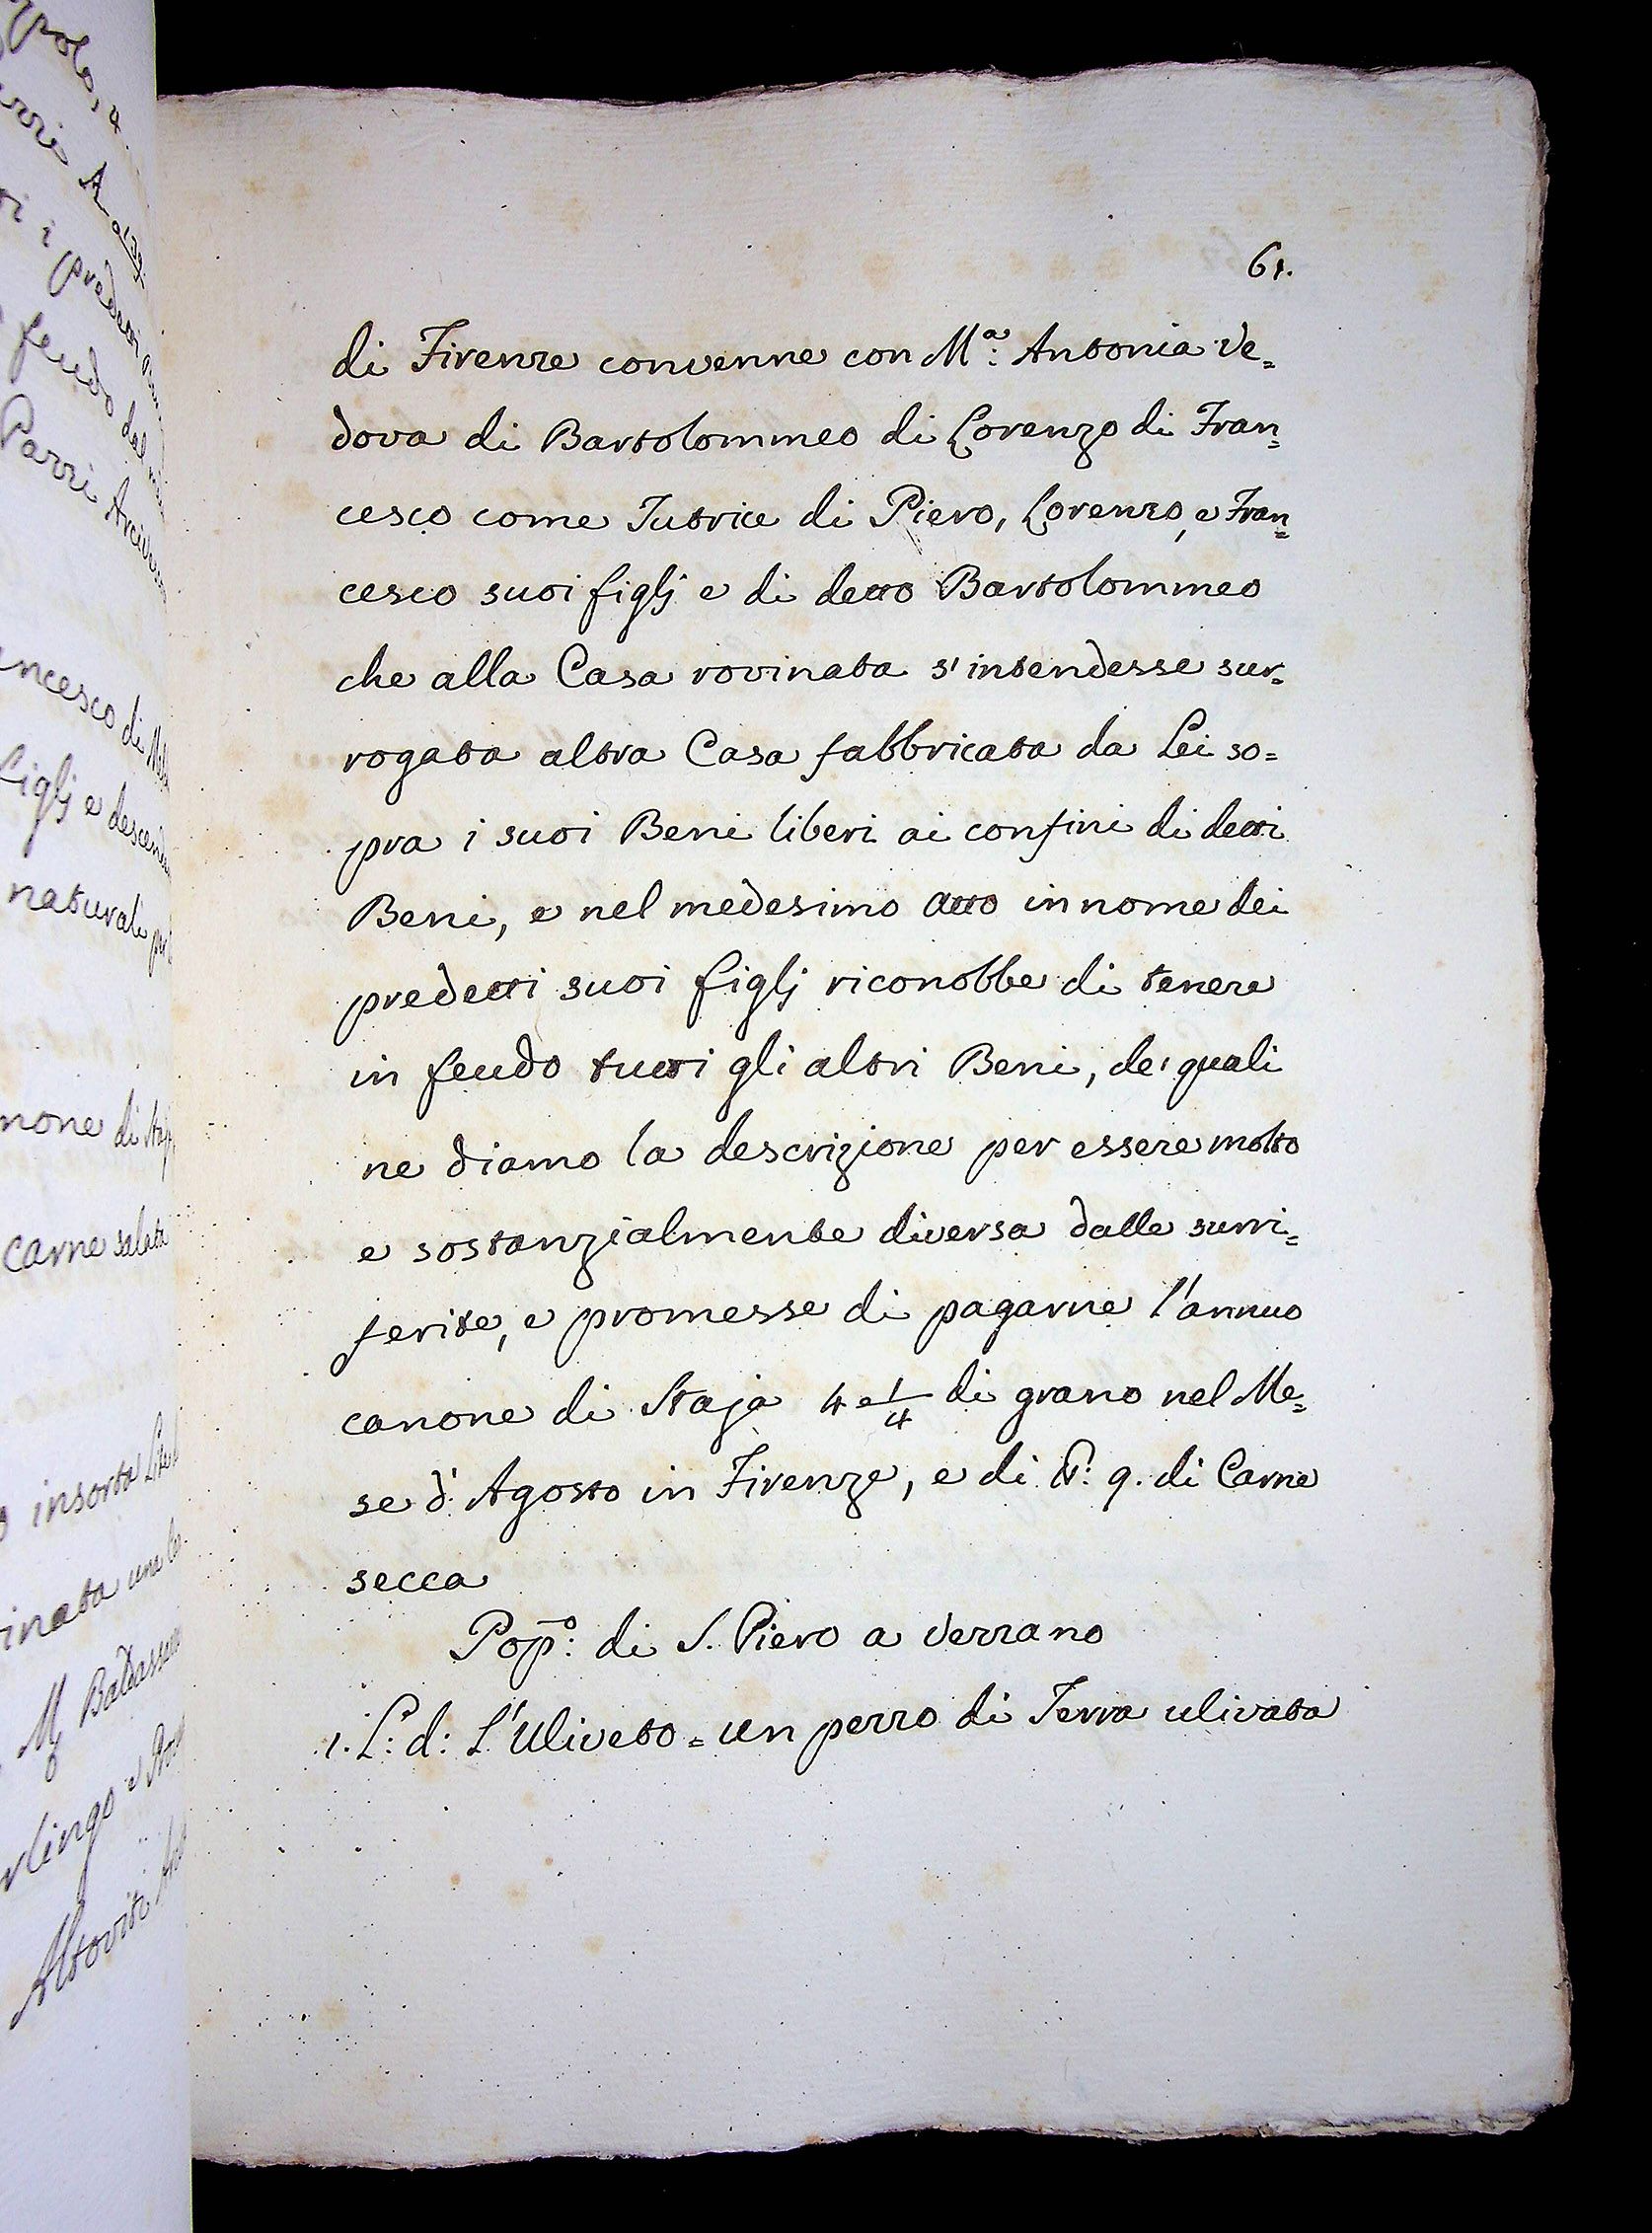 61.
di Firenze convenne con M.ª Antonia Ve=
dova di Bartolommeo di Lorenzo di Fran=
cesco come Tutrice di Piero, Lorenzo, e Fran=
cesco suoi figlj e di detto Bartolommeo
che alla Casa rovinata s'intendesse sur=
rogata altra Casa fabbricata da Lei so=
pra i suoi Beni liberi ai confini di detti
Beni, e nel medesimo atto in nome dei
predetti suoi figlj riconobbe di tenere
in feudo tutti gli altri Beni, de' quali
ne diamo la descrizione per essere molto
e sostanzialmente diversa dalle surri=
ferite, e promesse di pagarne l'annuo
canone di Staja 4 e 1/4 di grano nel Me=
se d'Agosto in Firenze, e di ℔: 9. di Carne
secca
Pop.º: di S. Piero a Verrano
1. L: d: L'Uliveto = un pezzo di Terra ulivata
feudo
Parri
ncesco di
figlj e
naturali
none di
carne salata
insorta
inata una
M Baldassarre
rlingo e
Altoviti